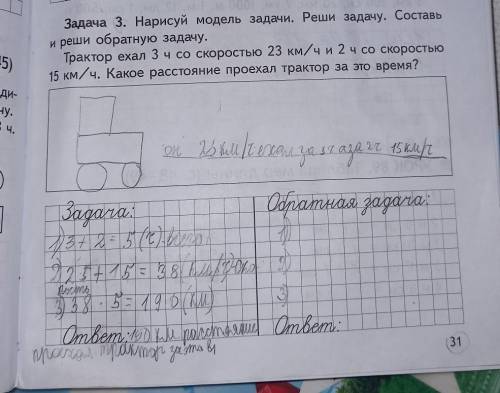 Задача 3. Нарисуй модель задачи. Реши задачу. Составь
и реши обратную задачу.
Трактор ехал 3 ч со скоростью 23 км/ч и 2 ч со скоростью
15 км/ч. Какое расстояние проехал трактор за это время?
5)
ди-
ну.
ч.
он 23 км/ч ехал за 15 км/ч
Задача:
1) 3 + 2 = 5 (ч)
2) 23 + 15 = 38 (км/ч)
рость
3) 38 · 5 = 190 (км)
Ответ: 190 км расстояние
проехал трактор за это в
Обратная задача:
1)
2)
3)
Ответ:
31